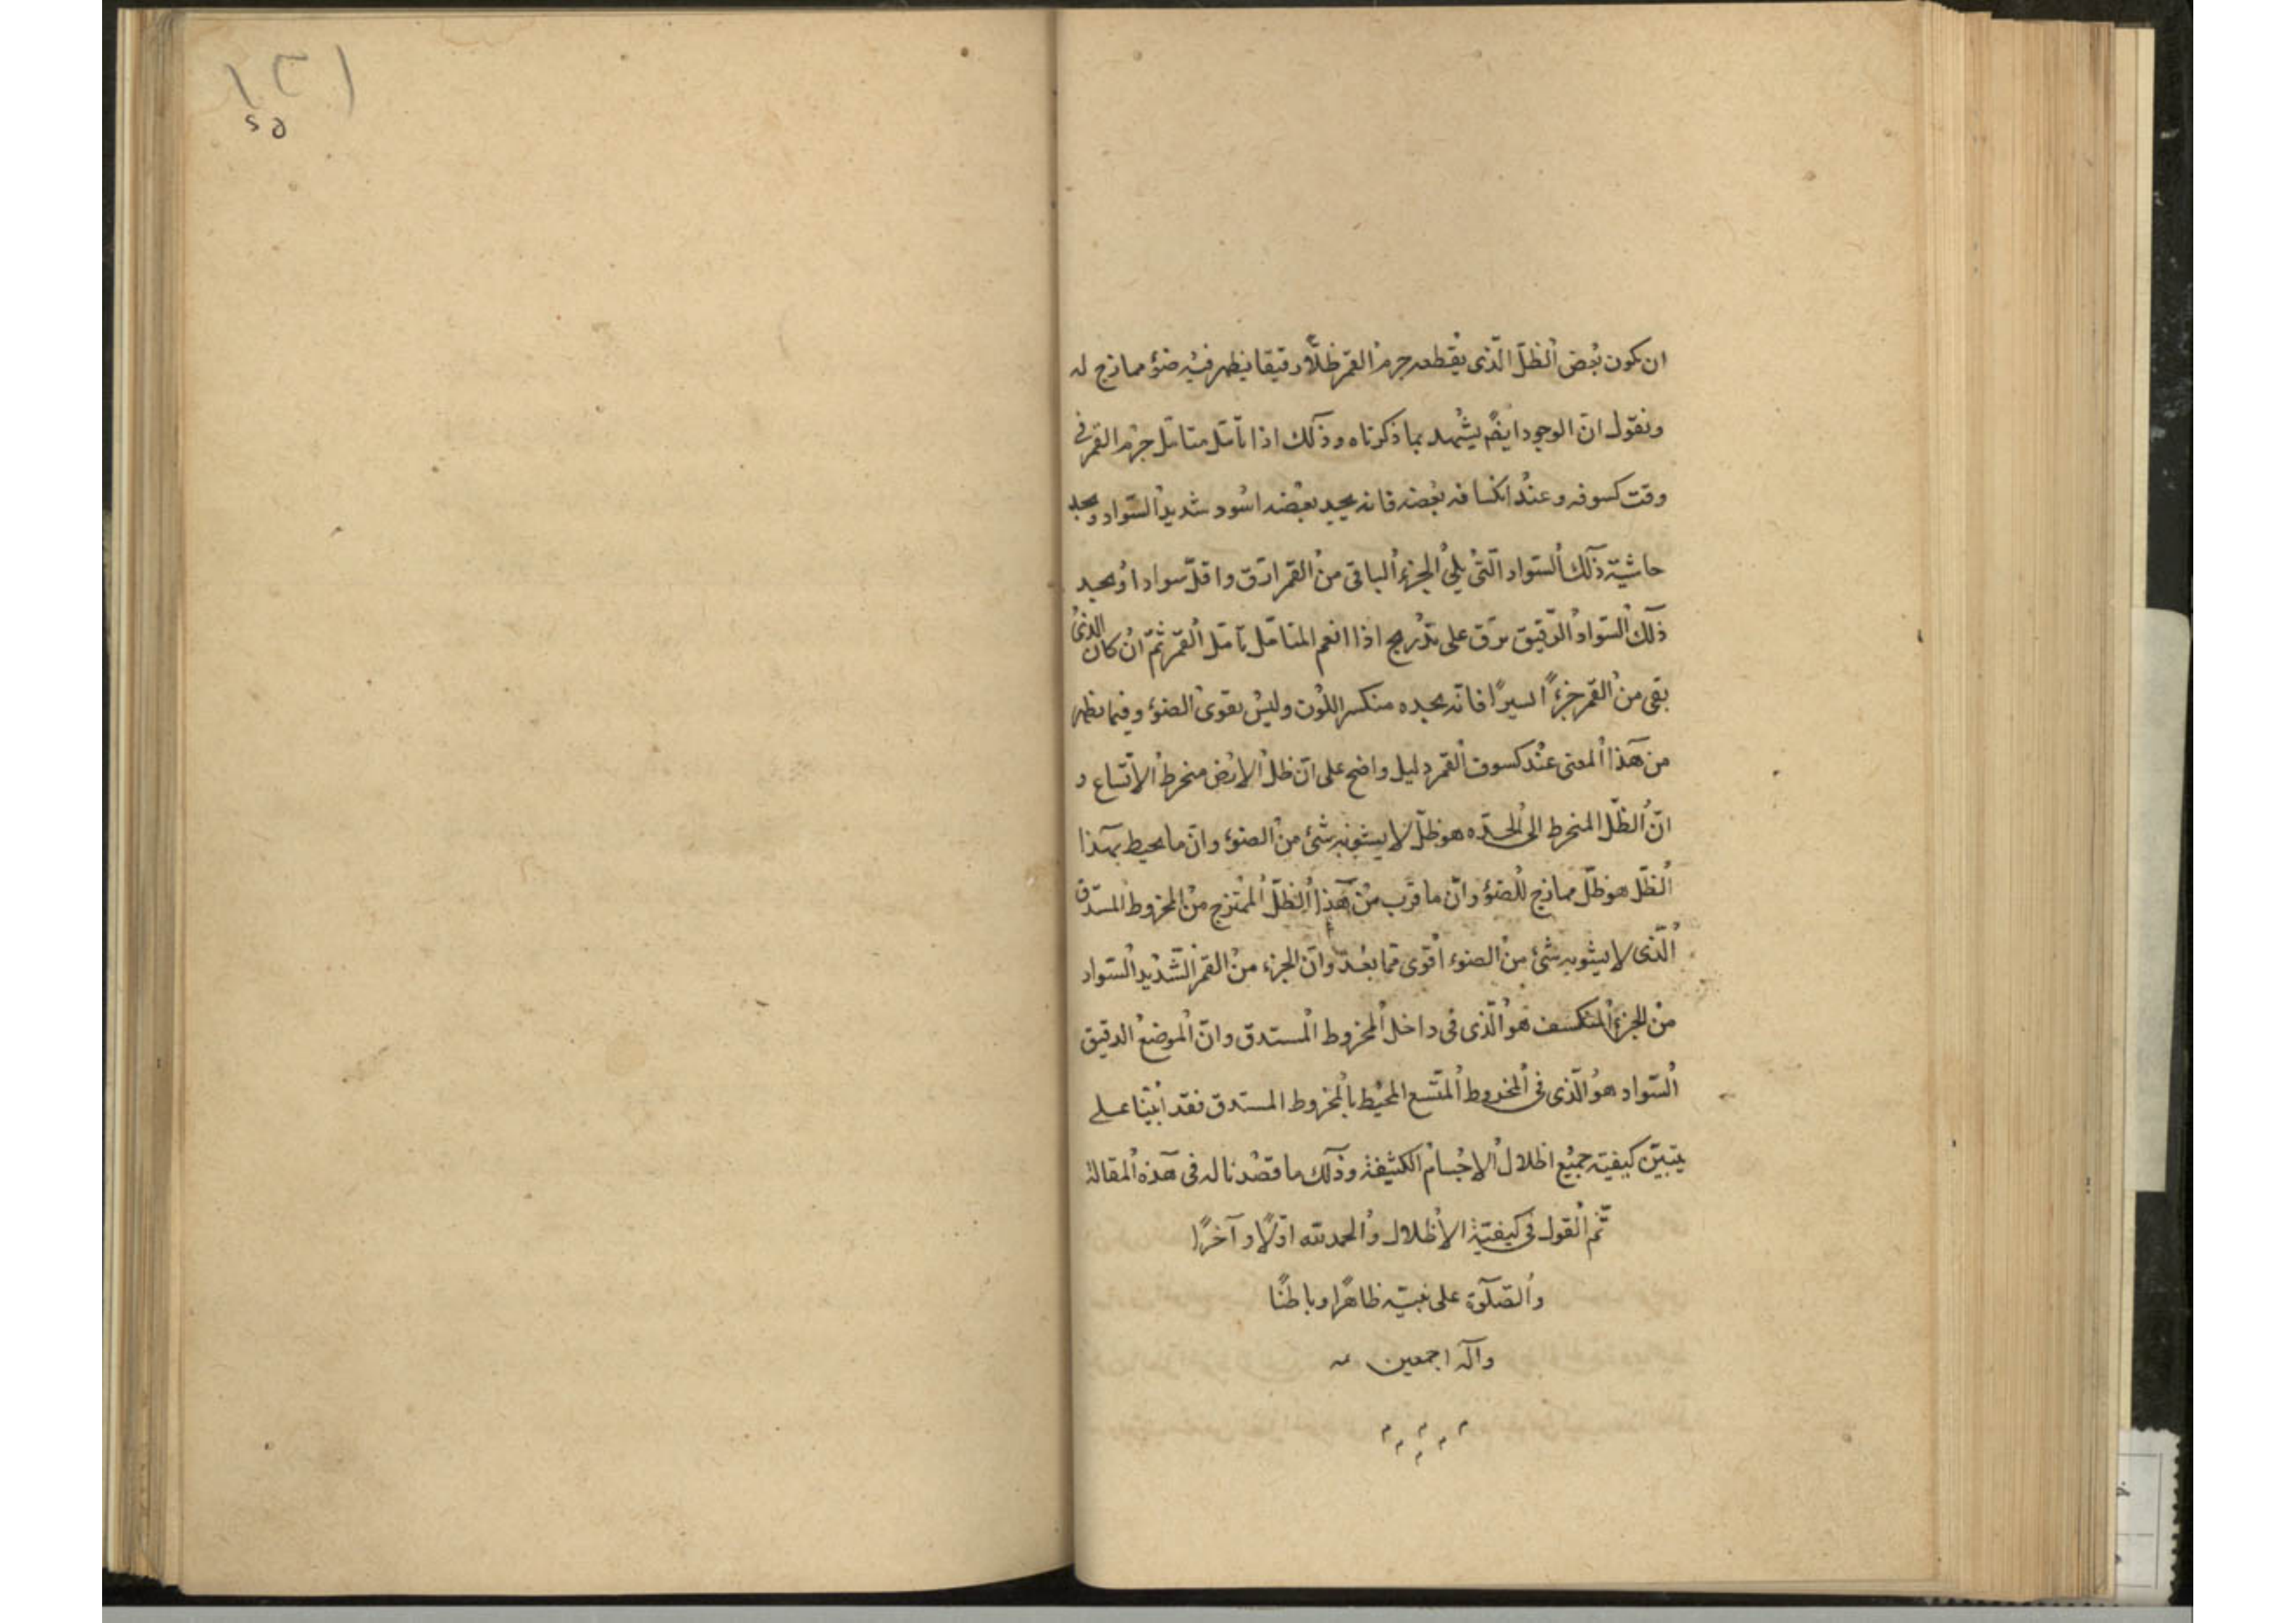 ان يكون بعض الظلّ الّذى يقطعه جرم القمر ظلّا رقيقا يظهر فيه ضوء ممازج له
ونقول انّ الوجود ايضً يشهد بما ذكرناه وذلك اذا تأمّل متامّل جرم القمر فى
وقت كسوفه وعند انكسافه بعضه فانه يجد بعضه اسود شديد السّواد ويجد
حاشية ذلك السّواد الّتى يلى الجزء الباقى من القمر ارق واقلّ سوادا ويجد
ذلك السّواد الرّقيق يرق على تدريج اذا انعم المتامّل تأمّل القمر ثمّ ان كان الذى
بقى من القمر جزءً ايسيرًا فانّه يجده منكسر اللون وليس بقوى الضوء وفيما يظهر
من هذا المعنى عند كسوف القمر دليل واضح على انّ ظل الارض منخرط الاتّساع و
انّ الظّل المنخرط الى الحدّه هو ظلّ لا يشوبه شئ من الضوء وانّ ما يحيط بهذا
الظّل هو ظلّ ممازج للضوء وانّ ما قرب من هذا الظلّ الممتزج من المخروط المستدق
الّذى لا يشوبه شئ من الضوء اقوى ممّا بعد وانّ الجزء من القمر الشّديد السّواد
من الجزء المنكسف هو الّذى فى داخل المخروط المستدق وانّ الموضع الدقيق
السّواد هو الّذى فى المخروط المتّسع المحيط بالمخروط المستدق فقد اتينا على
تبيّن كيفية جميع اظلال الاجسام الكثيفة وذلك ما قصدنا له فى هذه المقالة
تمّ القول فى كيفيّة الاظلال والحمد لله اوّلًا وآخرًا
والصّلوة على نبيّه ظاهرًا وباطنًا
وآله اجمعين
١٣١
٤٥